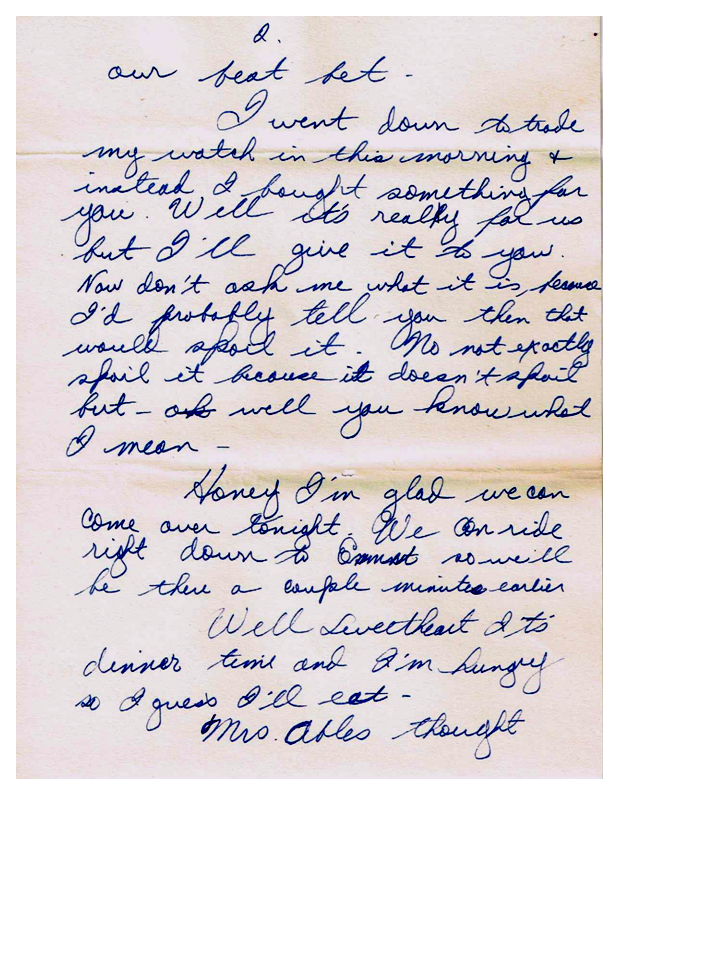 2.
our best bet -
I went down to trade
my watch in this morning &
instead I bought something for
you. Well it's really for us
but I'll give it to you.
Now don't ask me what it is, because
I'd probably tell you then that
would spoil it. No not exactly
spoil it because it doesn't spoil
but - oh well you know what
I mean -
Honey I'm glad we can
come over tonight. We can ride
right down to so we'll
be there a couple minutes earlier
Well Sweetheart Its
dinner time and I'm hungry
so I guess I'll eat -
Mrs. Ables thought